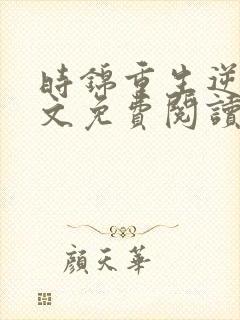 時錦重生逆
文免費閱讀
顏天華